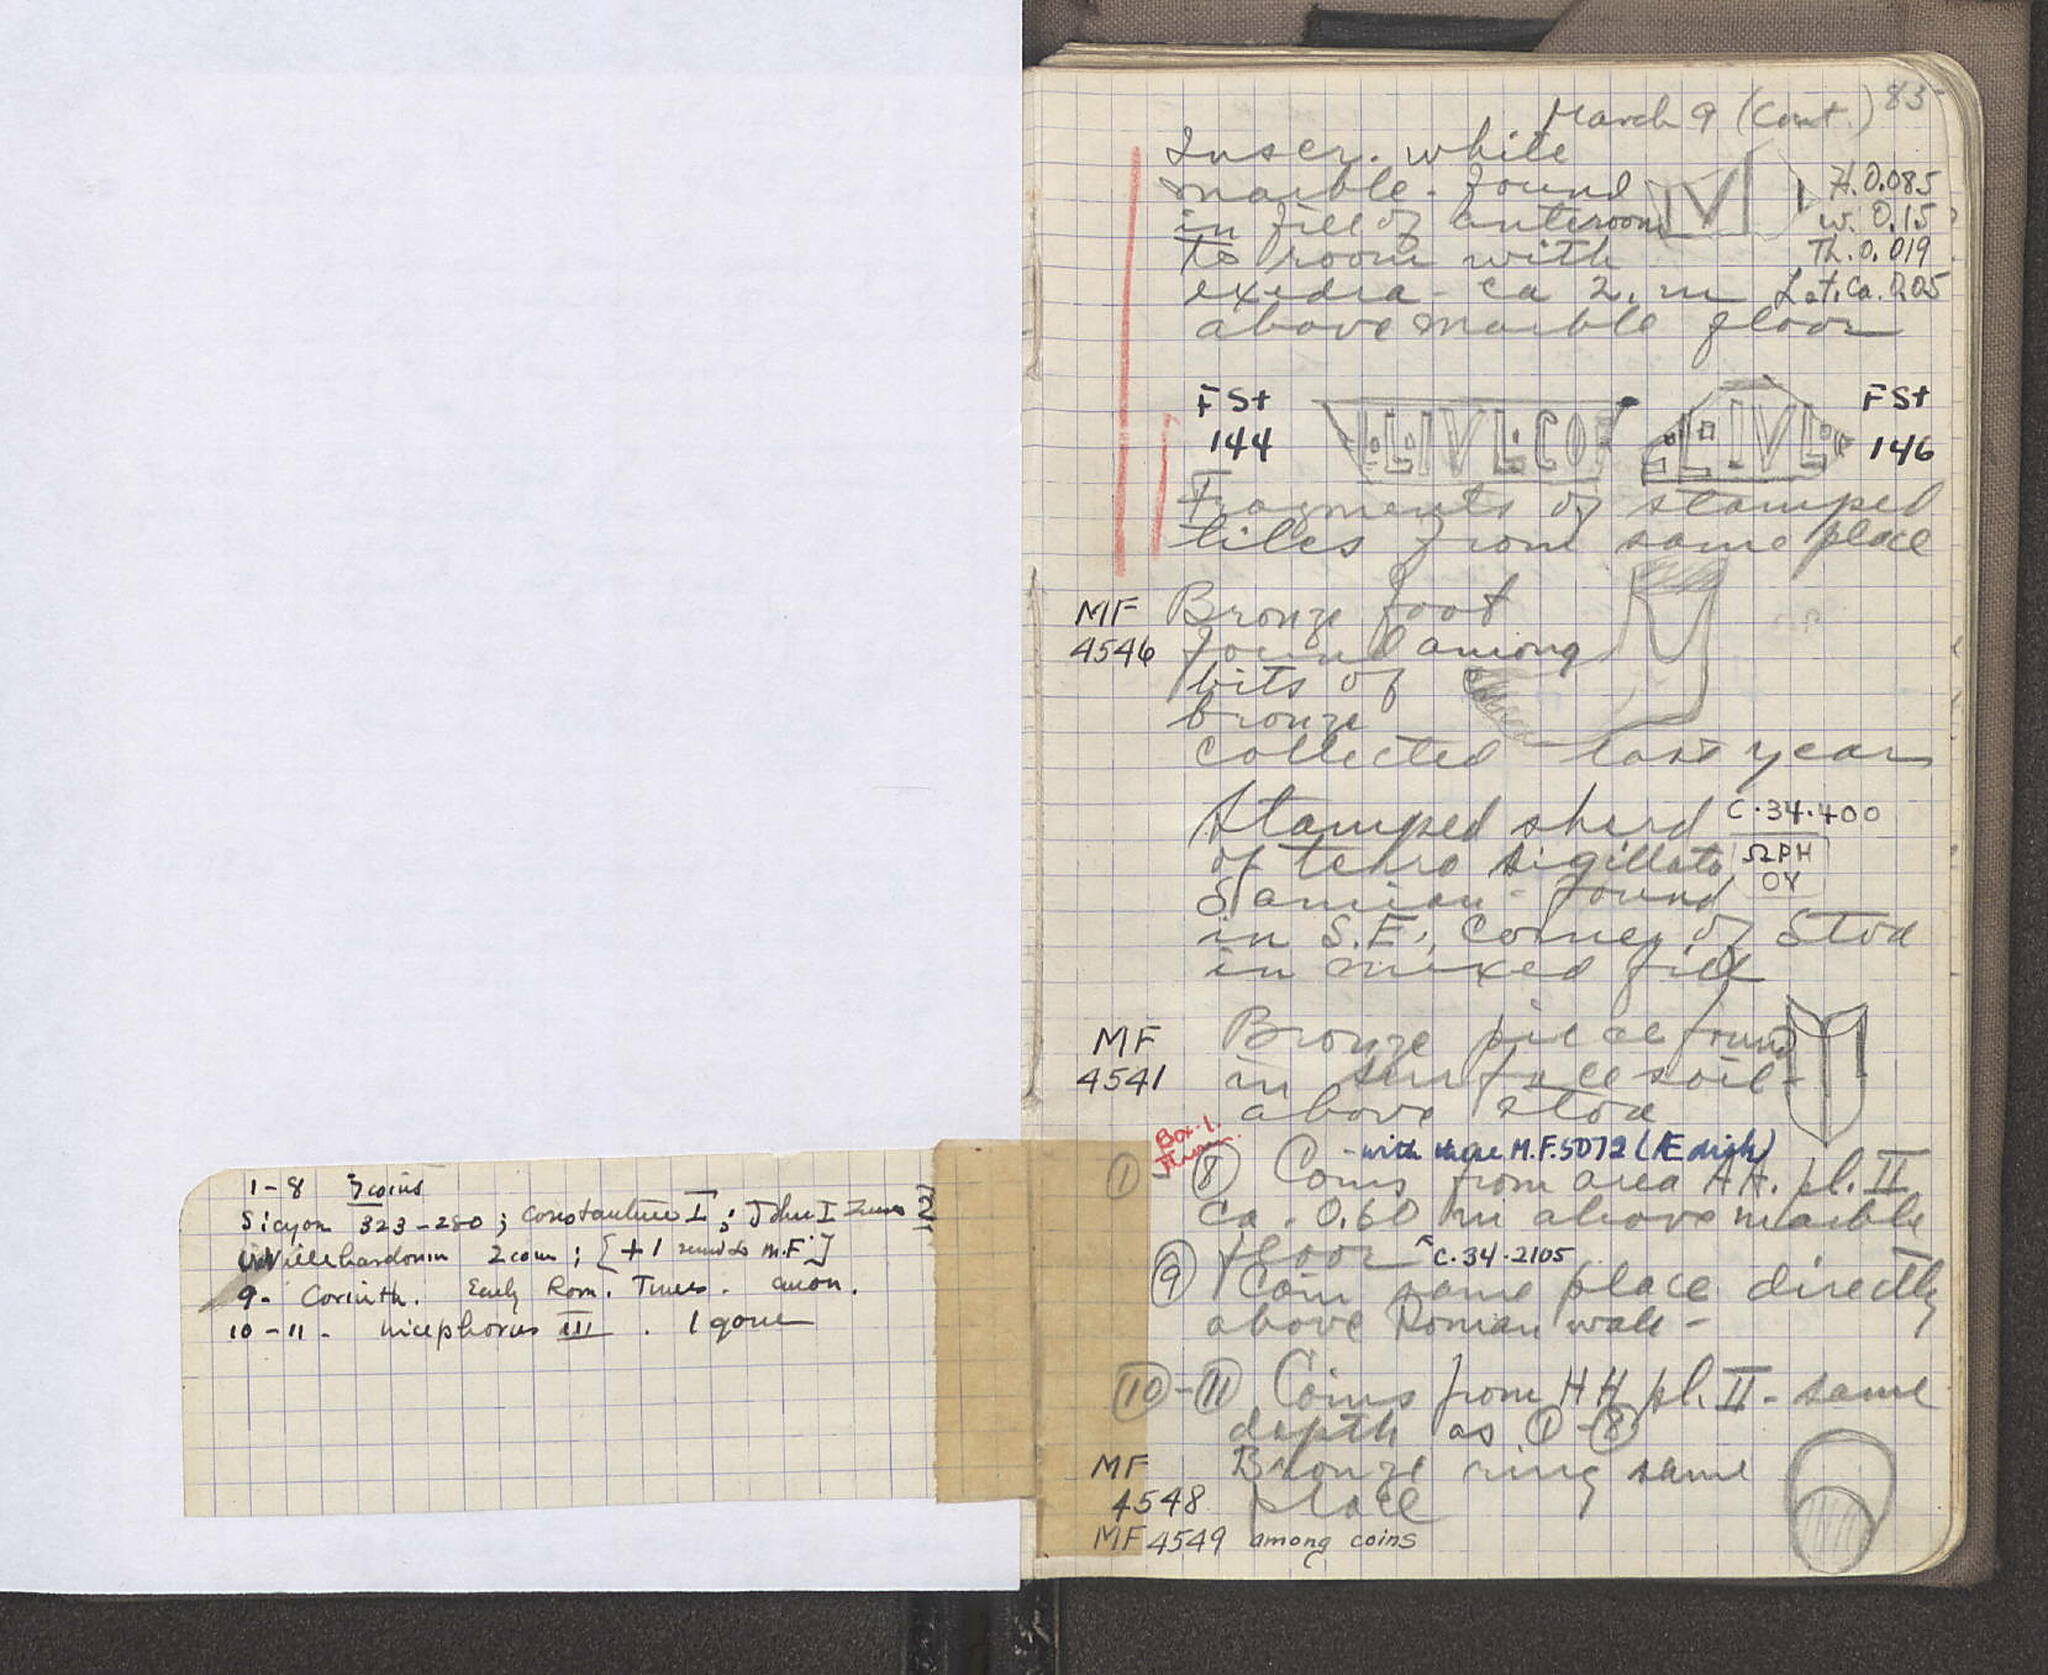 1-8 7 coins
Sicyon 323-280; Constantine I; John I Zimis 2?
Villehardouin 2 coins; [+1 remd to M.F.]
9- Corinth. Early Rom. Times. anon.
10-11- Nicephorus III. 1 gone
March 9 (Cont.) 83
Inscr. white
marble - found
in fill of anteroom
to room with
exedra - ca 2. m
above marble floor
H. 0.085
W. 0.15
Th. 0.019
Let. ca. 0.05
FSt
144
L·IVL·COR
L·IVL
FSt
146
Fragments of stamped
tiles from same place
MF
4546
Bronze foot
found among
bits of
bronze
collected last year
Stamped sherd C·34·400
of terra sigillata
ΩΡΗ
ΟΥ
Samian - found
in S.E. corner of Stoa
in mixed fill
MF
4541
Bronze piece found
in surface soil -
above stoa
Box 1.
- with these M.F. 5072 (Æ disk)
1 - 8 Coins from area AA. pl. II
ca. 0.60 m above marble
floor C·34·2105
9 Coin same place directly
above Roman wall -
10 - 11 Coins from HH pl. II - same
depth as 1 - 8
MF
4548
Bronze ring same
place
MF 4549 among coins